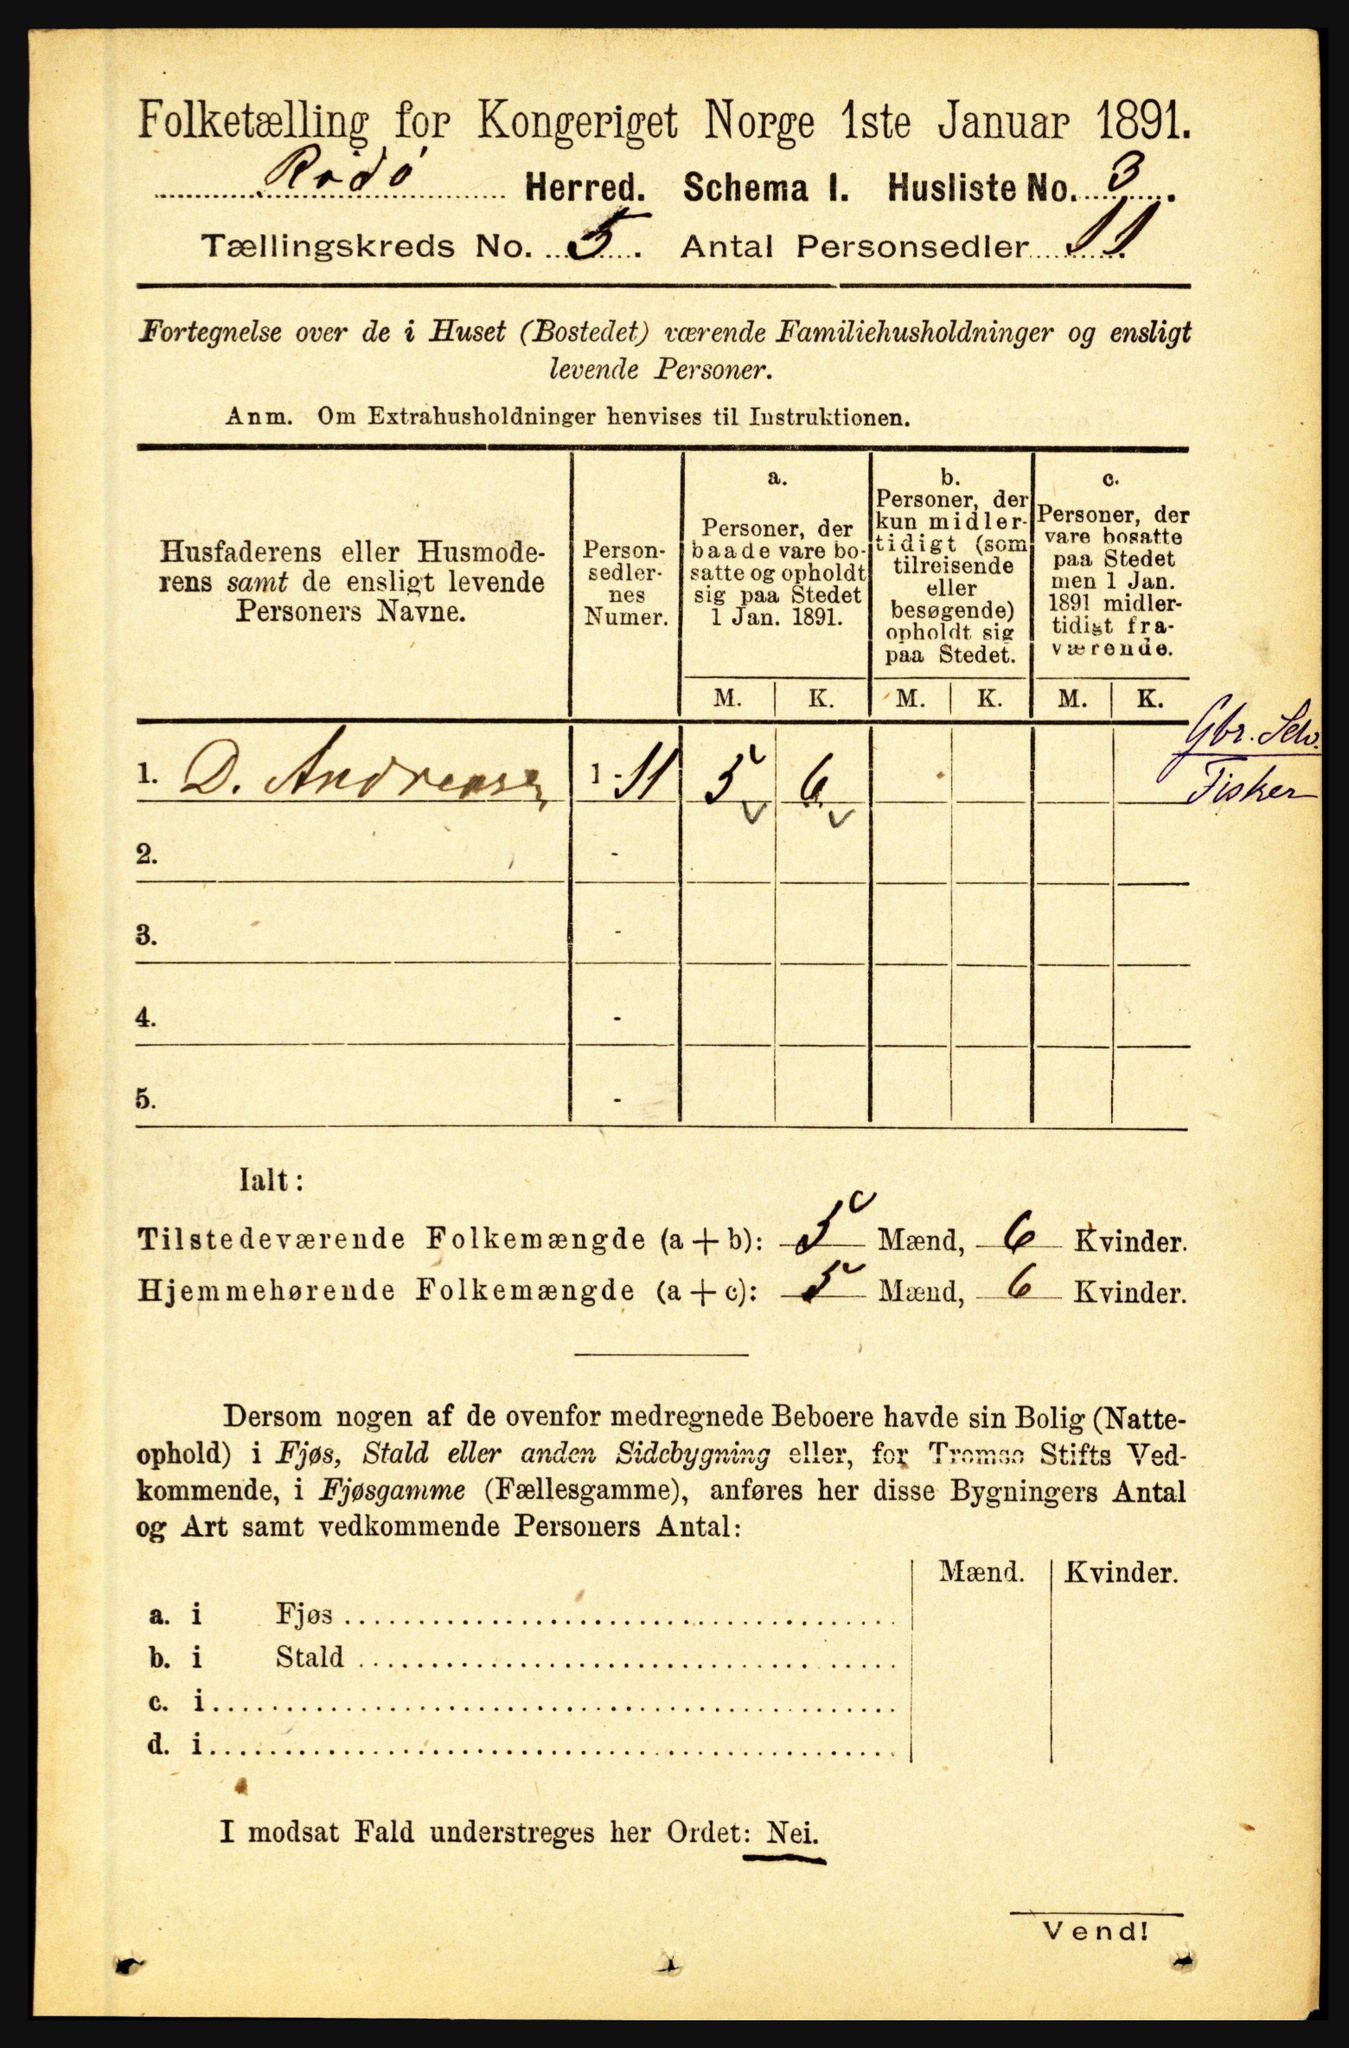 Folketælling for Kongeriget Norge 1ste Januar 1891.
Rødø Herred. Schema I. Husliste No. 3.
Tællingskreds No. 5. Antal Personsedler 11.
Fortegnelse over de i Huset (Bostedet) værende Familiehusholdninger og ensligt
levende Personer.
Anm. Om Extrahusholdninger henvises til Instruktionen.
Husfaderens eller Husmode-
rens samt de ensligt levende
Personers Navne.
Person-
sedler-
nes
Numer.
a.
Personer, der
baade vare bo-
satte og opholdt
sig paa Stedet
1 Jan. 1891.
b.
Personer, der
kun midler-
tidigt (som
tilreisende
eller
besøgende)
opholdt sig
paa Stedet.
c.
Personer, der
vare bosatte
paa Stedet
men 1 Jan.
1891 midler-
tidigt fra-
værende.
M. K. M. K. M. K.
Gbr. Selv.
1. D. Andreasen 1 - 11 5 6 Fisker
2. -
3. -
4. -
5. -
Ialt:
Tilstedeværende Folkemængde (a + b): 5 Mænd, 6 Kvinder.
Hjemmehørende Folkemængde (a + c): 5 Mænd, 6 Kvinder.
Dersom nogen af de ovenfor medregnede Beboere havde sin Bolig (Natte-
ophold) i Fjøs, Stald eller anden Sidebygning eller, for Tromsø Stifts Ved-
kommende, i Fjøsgamme (Fællesgamme), anføres her disse Bygningers Antal
og Art samt vedkommende Personers Antal:
Mænd. Kvinder.
a. i Fjøs
b. i Stald
c. i
d. i
I modsat Fald understreges her Ordet: Nei.
Vend!